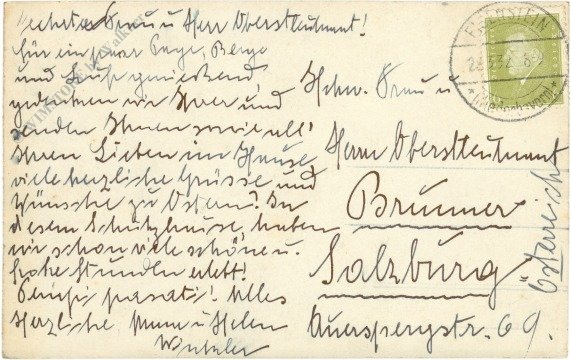 Verehrte Frau u Herr Oberstleutnant!
Für ein paar Tage, Berge
und Luft genießend,
gedenken wir Ihrer und
senden Ihnen sowie all'
Ihren Lieben im Hause
viele herzliche Grüsse und
Wünsche zu Ostern! In
diesem Schutzhause, haben
wir schon viele schöne u.
frohe Stunden erlebt!
Tempi passati! Alles
Herzliche u Helen
Winkler
Hchw. Frau u
Herrn Oberstleutnant
Brunner
Salzburg
Auerspergstr. 69.
Österreich